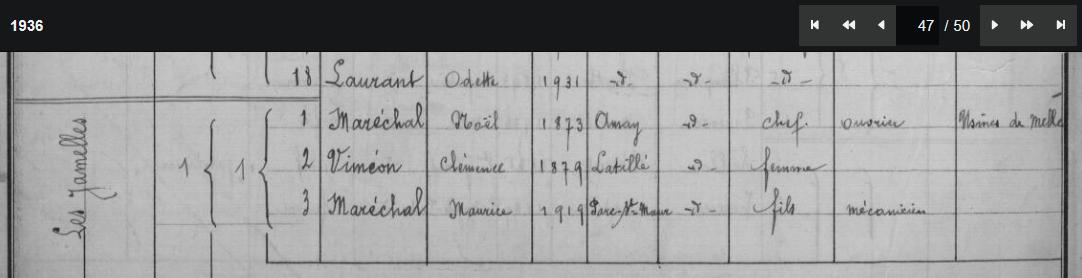 1936 47 / 50
18 Laurant Odette 1931 -d°- -d°- -d°-
Les Jamelles 1 1 1 Maréchal Noël 1873 -d°- chef. ouvrier Usines de Melle
2 Viméon Clémence 1879 Latillé -d°- femme
3 Maréchal Maurice 1919 Parc-St-Maur -d°- fils mécanicien